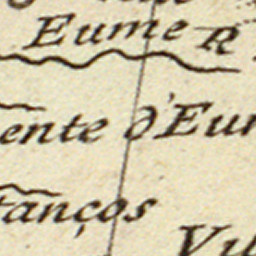 Eume R
ente d'Eur
tanços
Vil